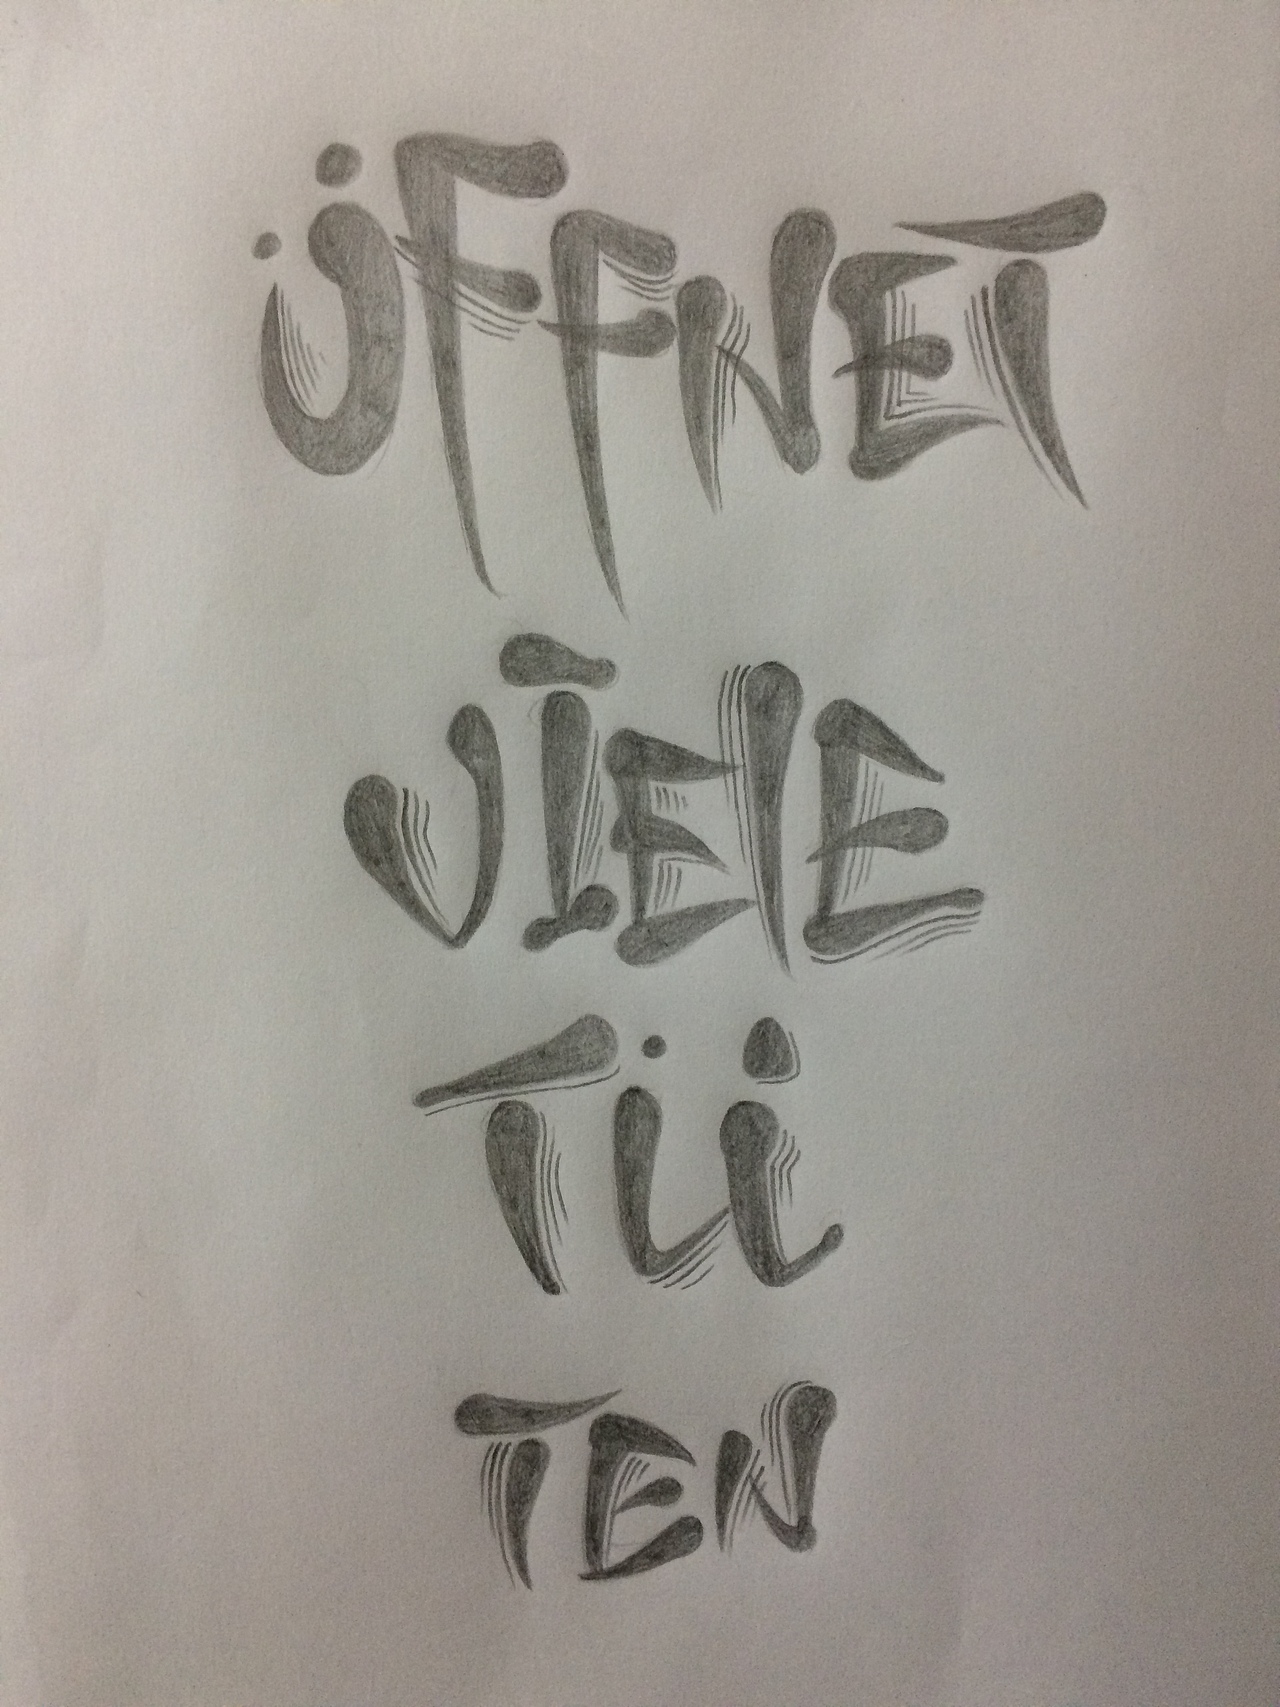 ÖFFNET
VIELE
TÜ
TEN